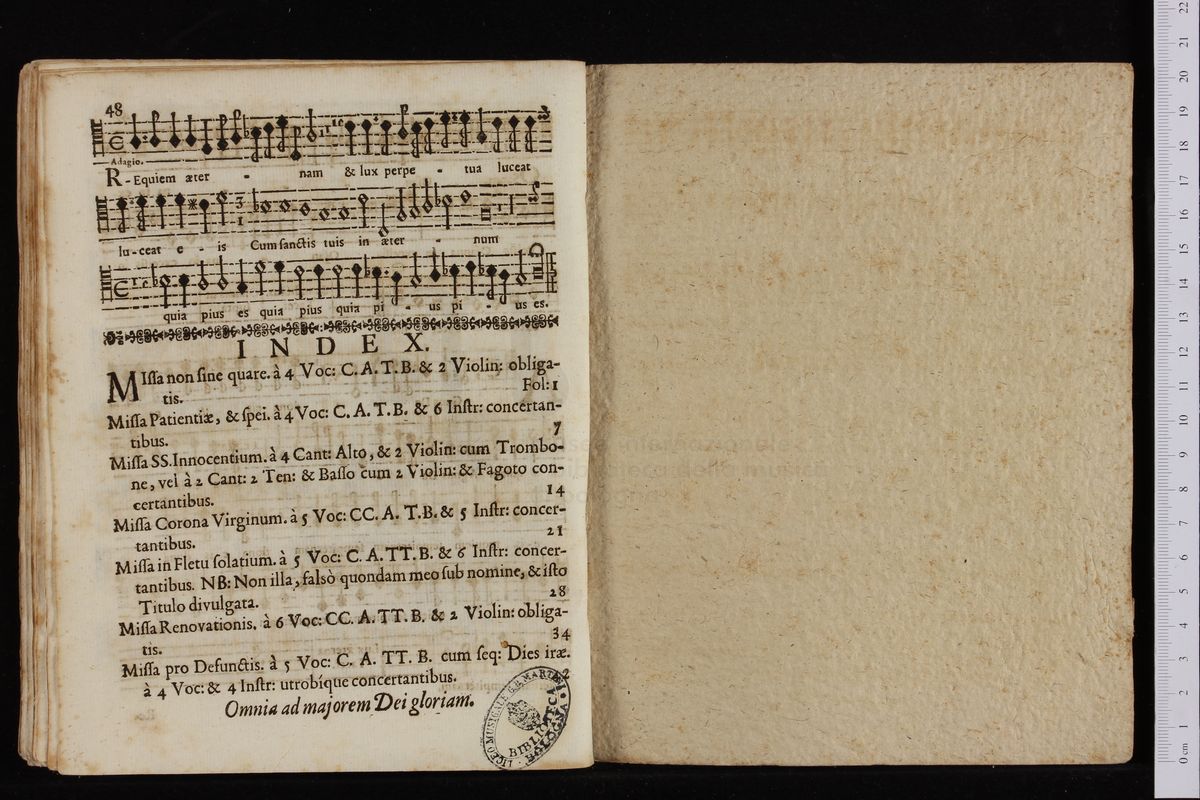 48
Adagio.
R-Equiem æter - nam & lux perpe - tua luceat
lu-ceat e - is Cum ſanctis tuis in æter - num
quia pius es quia pius quia pi - us pi - us es.
INDEX.
MIſſa non ſine quare. à 4 Voc: C. A. T. B. & 2 Violin: obliga-
tis. Fol: 1
Miſſa Patientiæ, & ſpei. à 4 Voc: C. A. T. B. & 6 Inſtr: concertan-
tibus. 7
Miſſa SS. Innocentium. à 4 Cant: Alto, & 2 Violin: cum Trombo-
ne, vel à 2 Cant: 2 Ten: & Baſſo cum 2 Violin: & Fagoto con-
certantibus. 14
Miſſa Corona Virginum. à 5 Voc: CC. A. T. B. & 5 Inſtr: concer-
tantibus. 21
Miſſa in Fletu ſolatium. à 5 Voc: C. A. TT. B. & 6 Inſtr: concer-
tantibus. NB: Non illa, falsò quondam meo ſub nomine, & iſto
Titulo divulgata. 28
Miſſa Renovationis. à 6 Voc: CC. A. TT. B. & 2 Violin: obliga-
tis. 34
Miſſa pro Defunctis. à 5 Voc: C. A. TT. B. cum ſeq: Dies iræ.
à 4 Voc: & 4 Inſtr: utrobique concertantibus. 2
Omnia ad majorem Dei gloriam.
LICEO MUSICALE G.B. MARTINI
BIBLIOTECA
BOLOGNA
0 cm 1 2 3 4 5 6 7 8 9 10 11 12 13 14 15 16 17 18 19 20 21 22